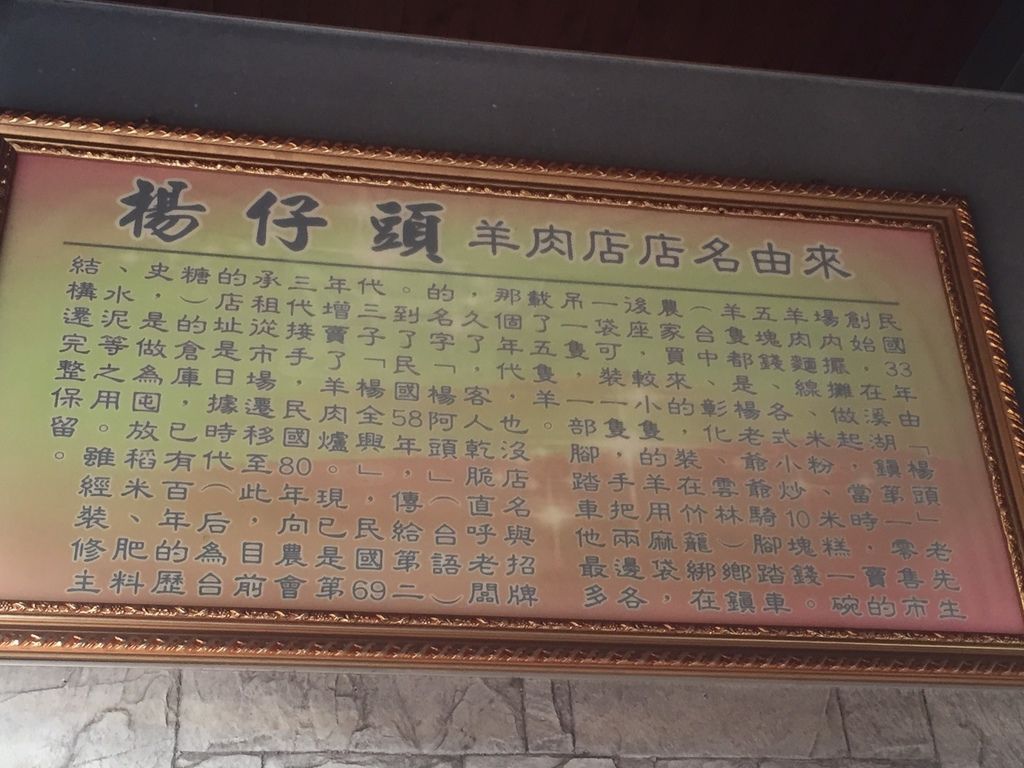 楊仔頭 羊肉店店名由來
民國33年由「楊頭」老先生
創始，在溪湖鎮第一零售市
場內擺攤做起，當時，賣的
羊肉麵線、米粉、米糕一碗
五塊錢、各式小炒10塊錢。
羊隻都是楊老爺爺騎腳踏車
（台中、彰化、雲林）鄉鎮
農家買來的，裝在竹籠綁在
後座，較小隻的羊用麻袋，
一袋可裝一隻，手把兩邊各
吊一隻，一部腳踏車他最多
載了五隻羊。
那個年代，也沒店名與招牌
，久了，客人乾脆直呼老闆
的名字「楊阿頭」（台語）
。到了民國58年，傳給第二
代三子「楊全興」，民國69
年增賣了羊肉爐。現已是第
三代接手，民國80年向農會
承租從市場遷移至此，目前
的店址是日據時代（后為台
糖）的倉庫，已有百年的歷
史，是做為囤放稻米、肥料
、水泥等之用。雖經裝修主
結構還完整保留。